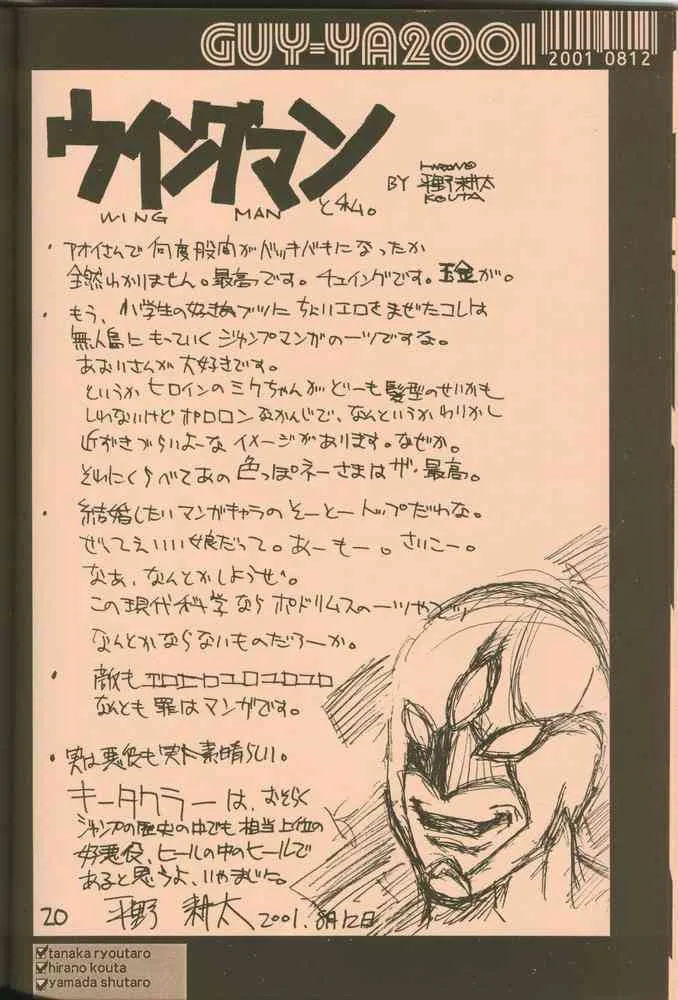 GUY-YA2001
2001 0812
ウイングマン
WING MAN と私。
BY 平野耕太
HIRANO
KOUTA
・アオイさんで何度股間がバッキバキになったか
全然わかりません。最高です。チュイングです。玉金が。
・もう、小学生の好きなブツにちょいエロをまぜたコレは
無人島にもっていくジャンプマンガの一ツですな。
あおいさんが大好きです。
というかヒロインのミクちゃんがどーも髪型のせいかも
しれないけどポロロンなかんじで、なんというかわりかし
近がきづらいよーなイメージがあります。なぜか。
それにくらべてあの色っぽネーさまはザ・最高。
・結婚したいマンガキャラのそーとートップだわな。
ぜってえいい娘だって。あーもー。さいこー。
なあ、なんとかしようぜ。
この現代科学ならポドリムスの一ツや二ツ
なんとかならないものだろーか。
・敵もエロエロユロユロユロ
なんとも罪なマンガです。
・実は悪役も実に素晴らしい。
キータクラーは、おそらく
ジャンプの歴史の中でも相当上位の
好悪役、ヒールの中のヒールで
あると思うよ、いやまじで。
20 平野 耕太 2001.8月12日
tanaka ryoutaro
hirano kouta
yamada shutaro